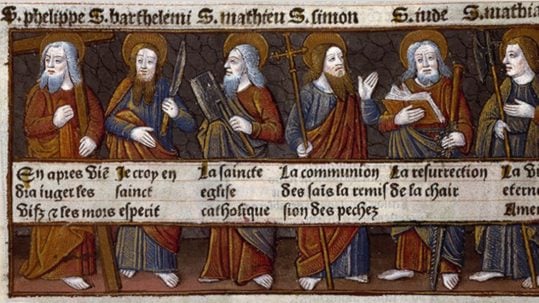 S. phelippe S. barthelemi S. mathieu S. simon S. iude S. mathia
En apres Viẽ
dra iuger les
Vifz & les mors
Je croy en
sainct
esperit
La saincte
eglise
catholique
La communion
des sais la remis
sion des pechez
La resurrection
de la chair
La Vi
eterne
Amen